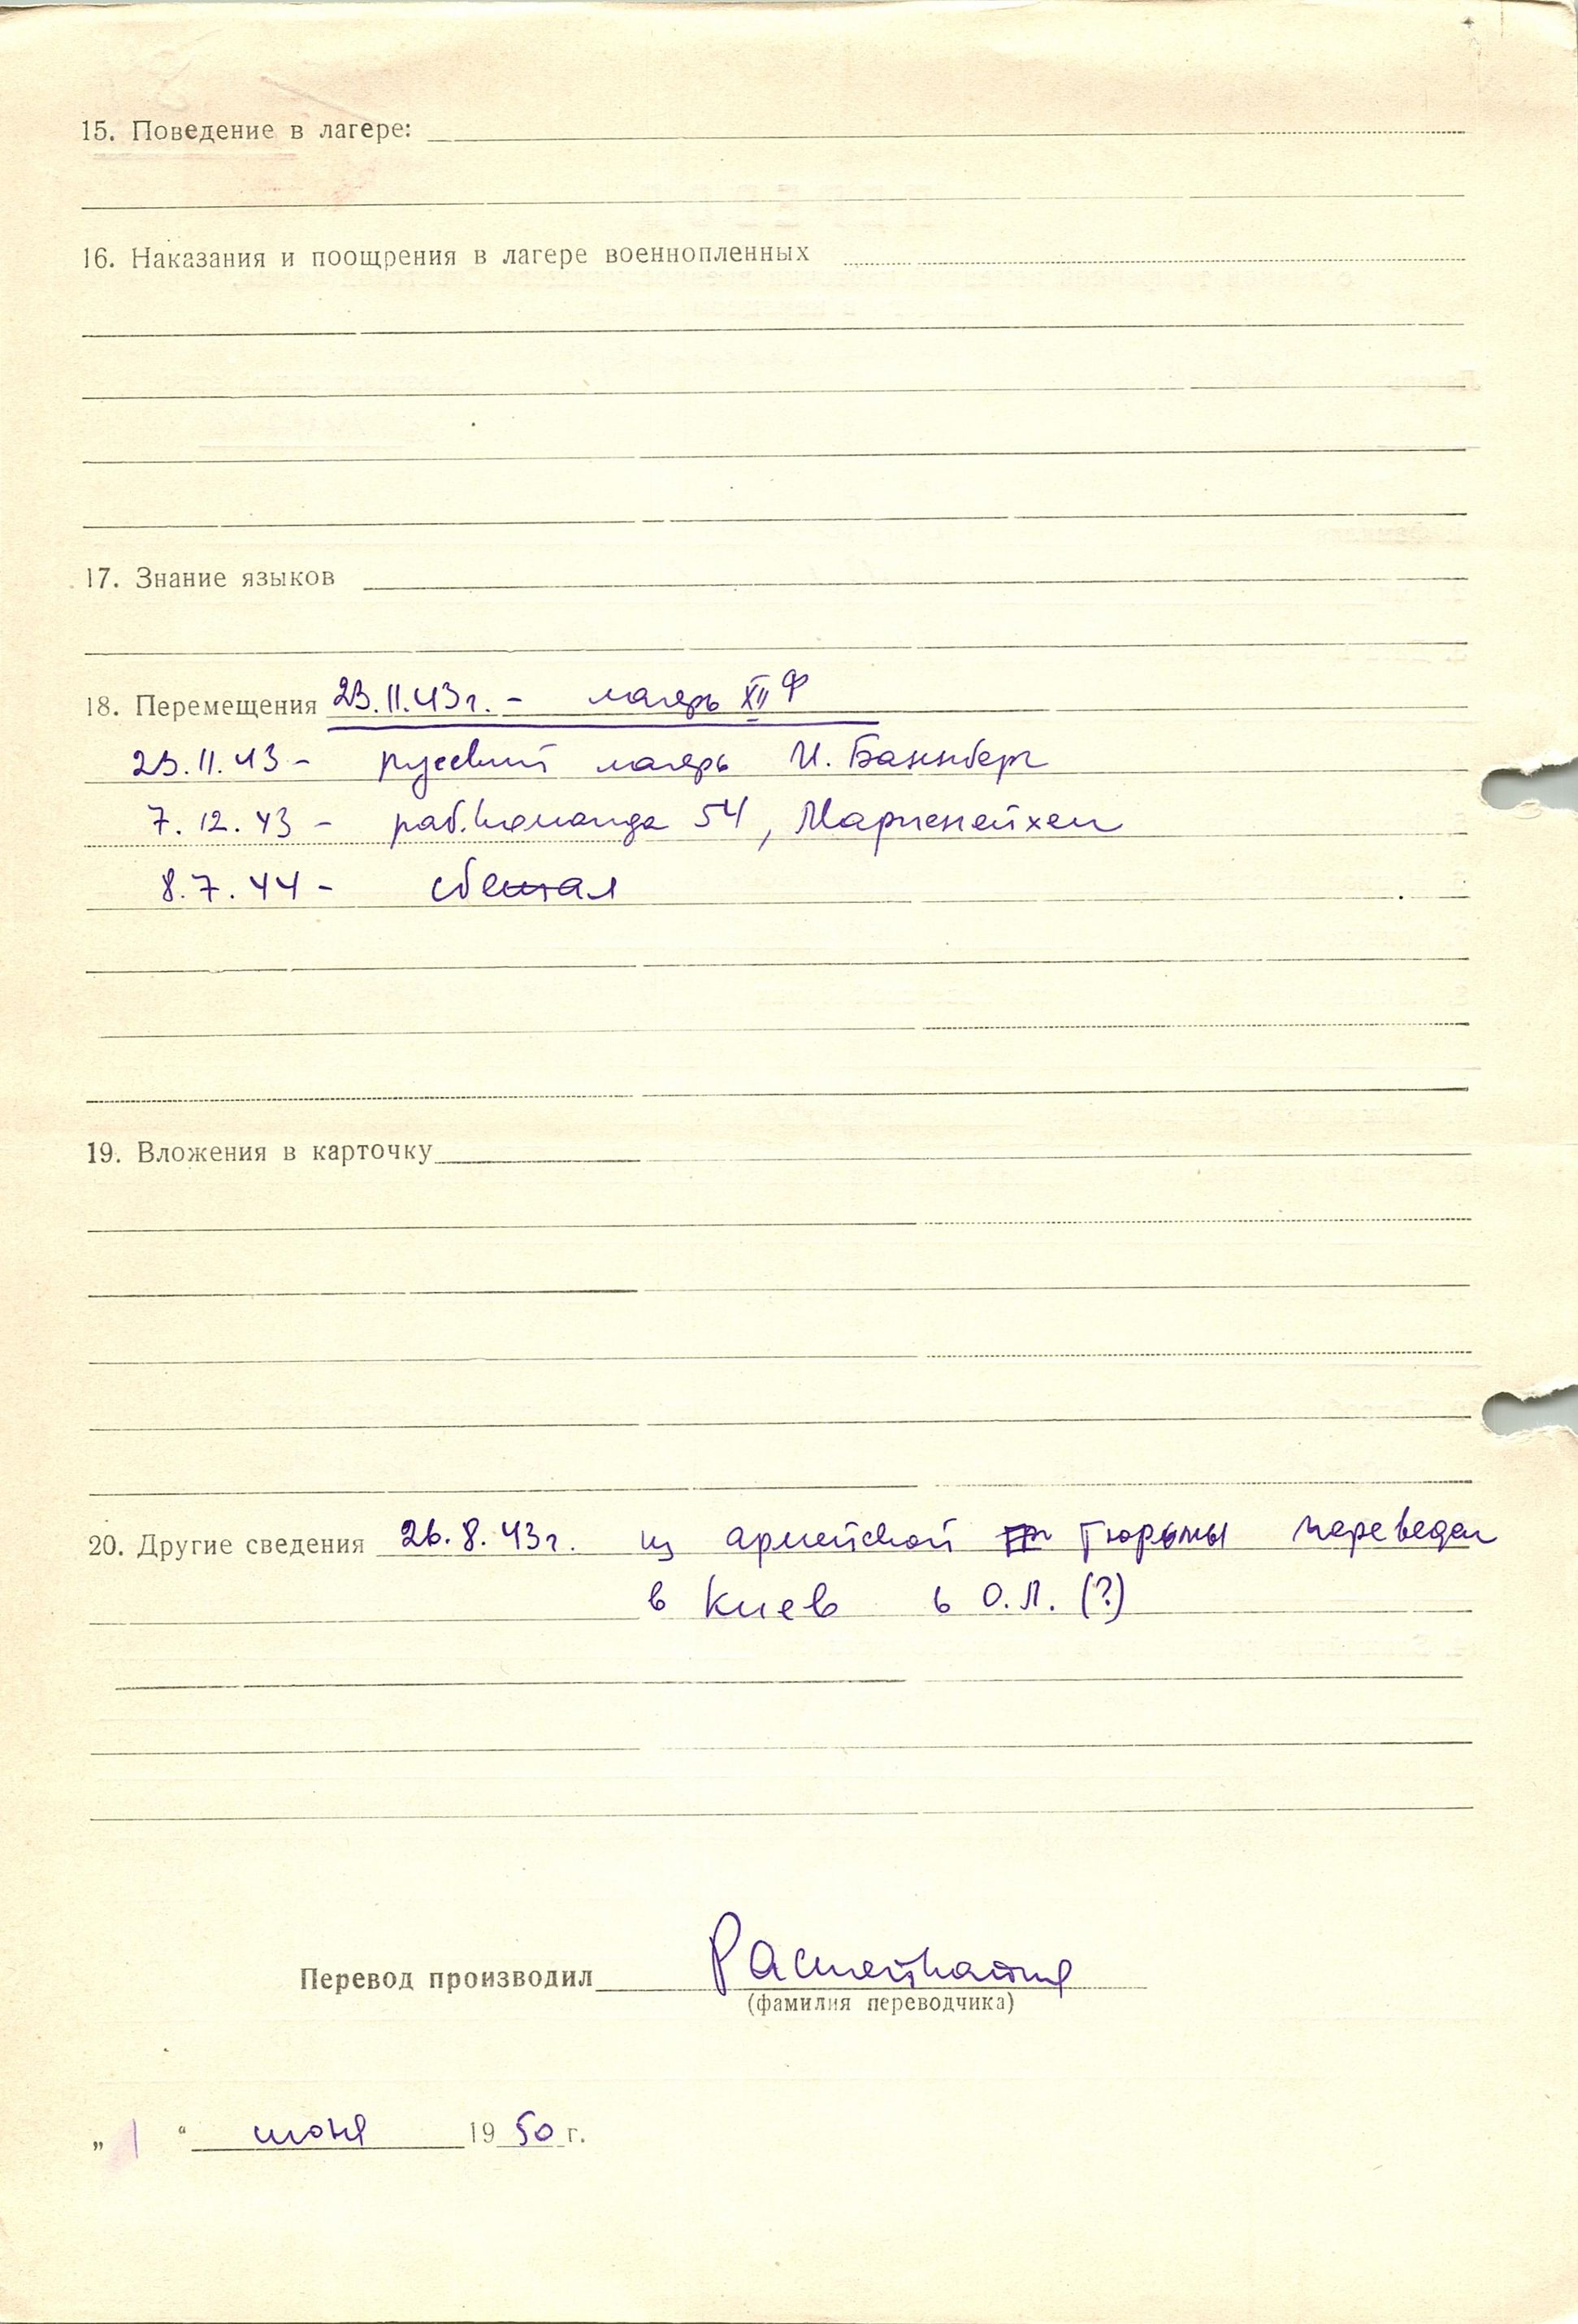 15. Поведение в лагере:
16. Наказания и поощрения в лагере военнопленных
17. Знание языков
18. Перемещения 23.11.43г. - лагерь XII Ф
23.11.43 - русский лагерь И. Баннберг
7.12.43 - раб.команда 54, Мариенейхен
8.7.44 - сбежал
19. Вложения в карточку
20. Другие сведения 26.8.43г. из армейской тюрьмы переведен
в Киев в О.Л. (?)
Перевод производил
(фамилия переводчика)
„ 1 “ июня 1950 г.